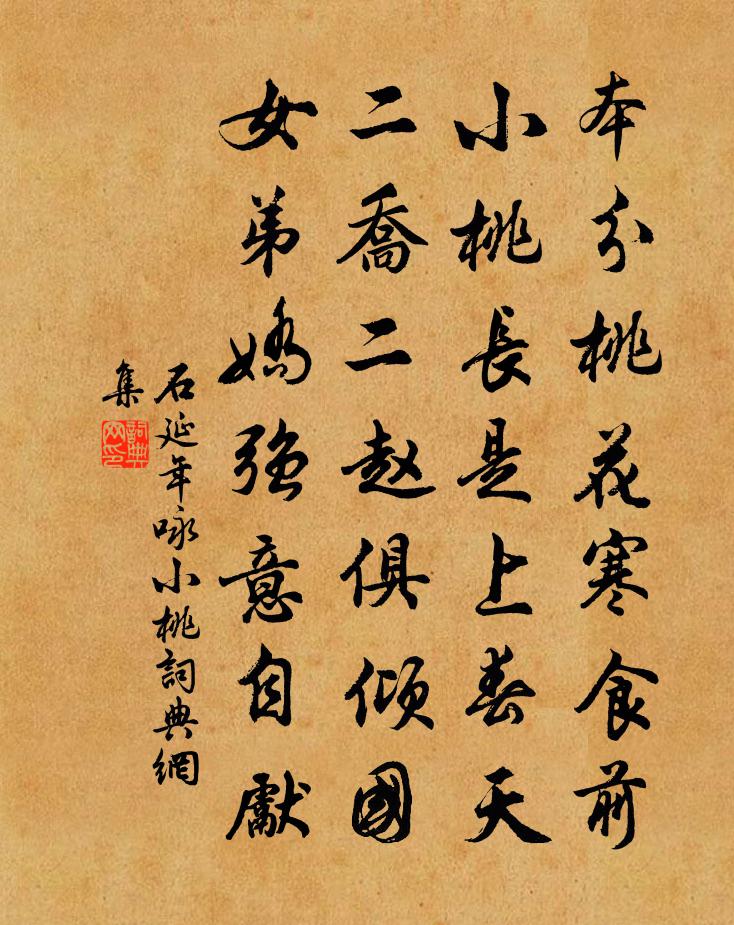 本分桃花寒食前
小桃長是上春天
二喬二赵俱傾國
女弟嬌強意自獻
石延年咏小桃詞典網
集
詞典
网印